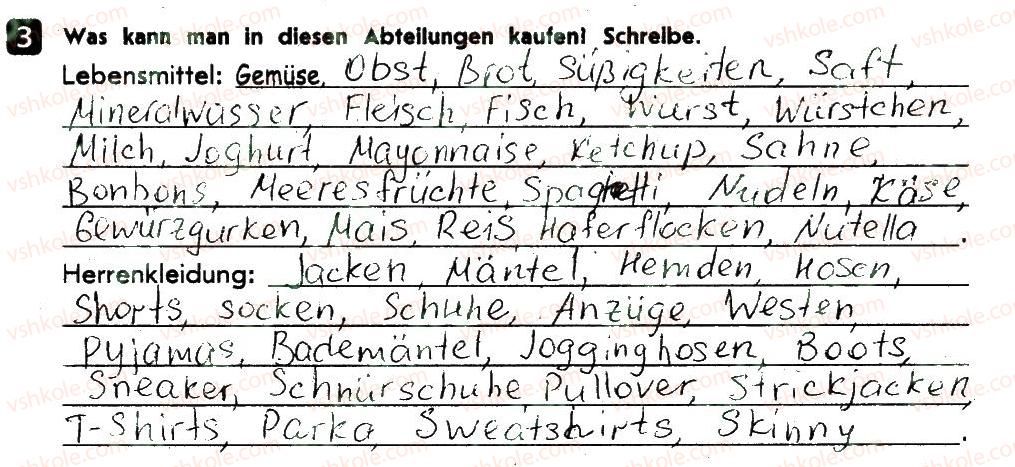 3 Was kann man in diesen Abteilungen kaufen? Schreibe.
Lebensmittel: Gemüse, Obst, Brot, Süßigkeiten, Saft,
Mineralwasser, Fleisch, Fisch, Wurst, Würstchen,
Milch, Joghurt, Mayonnaise, Ketchup, Sahne,
Bonbons, Meeresfrüchte, Spagetti, Nudeln, Käse,
Gewürzgurken, Mais, Reis, Haferflocken, Nutella.
Herrenkleidung: Jacken, Mäntel, Hemden, Hosen,
Shorts, Socken, Schuhe, Anzüge, Westen,
Pyjamas, Bademäntel, Jogginghosen, Boots,
Sneaker, Schnürschuhe, Pullover, Strickjacken,
T-Shirts, Parka, Sweatshirts, Skinny.